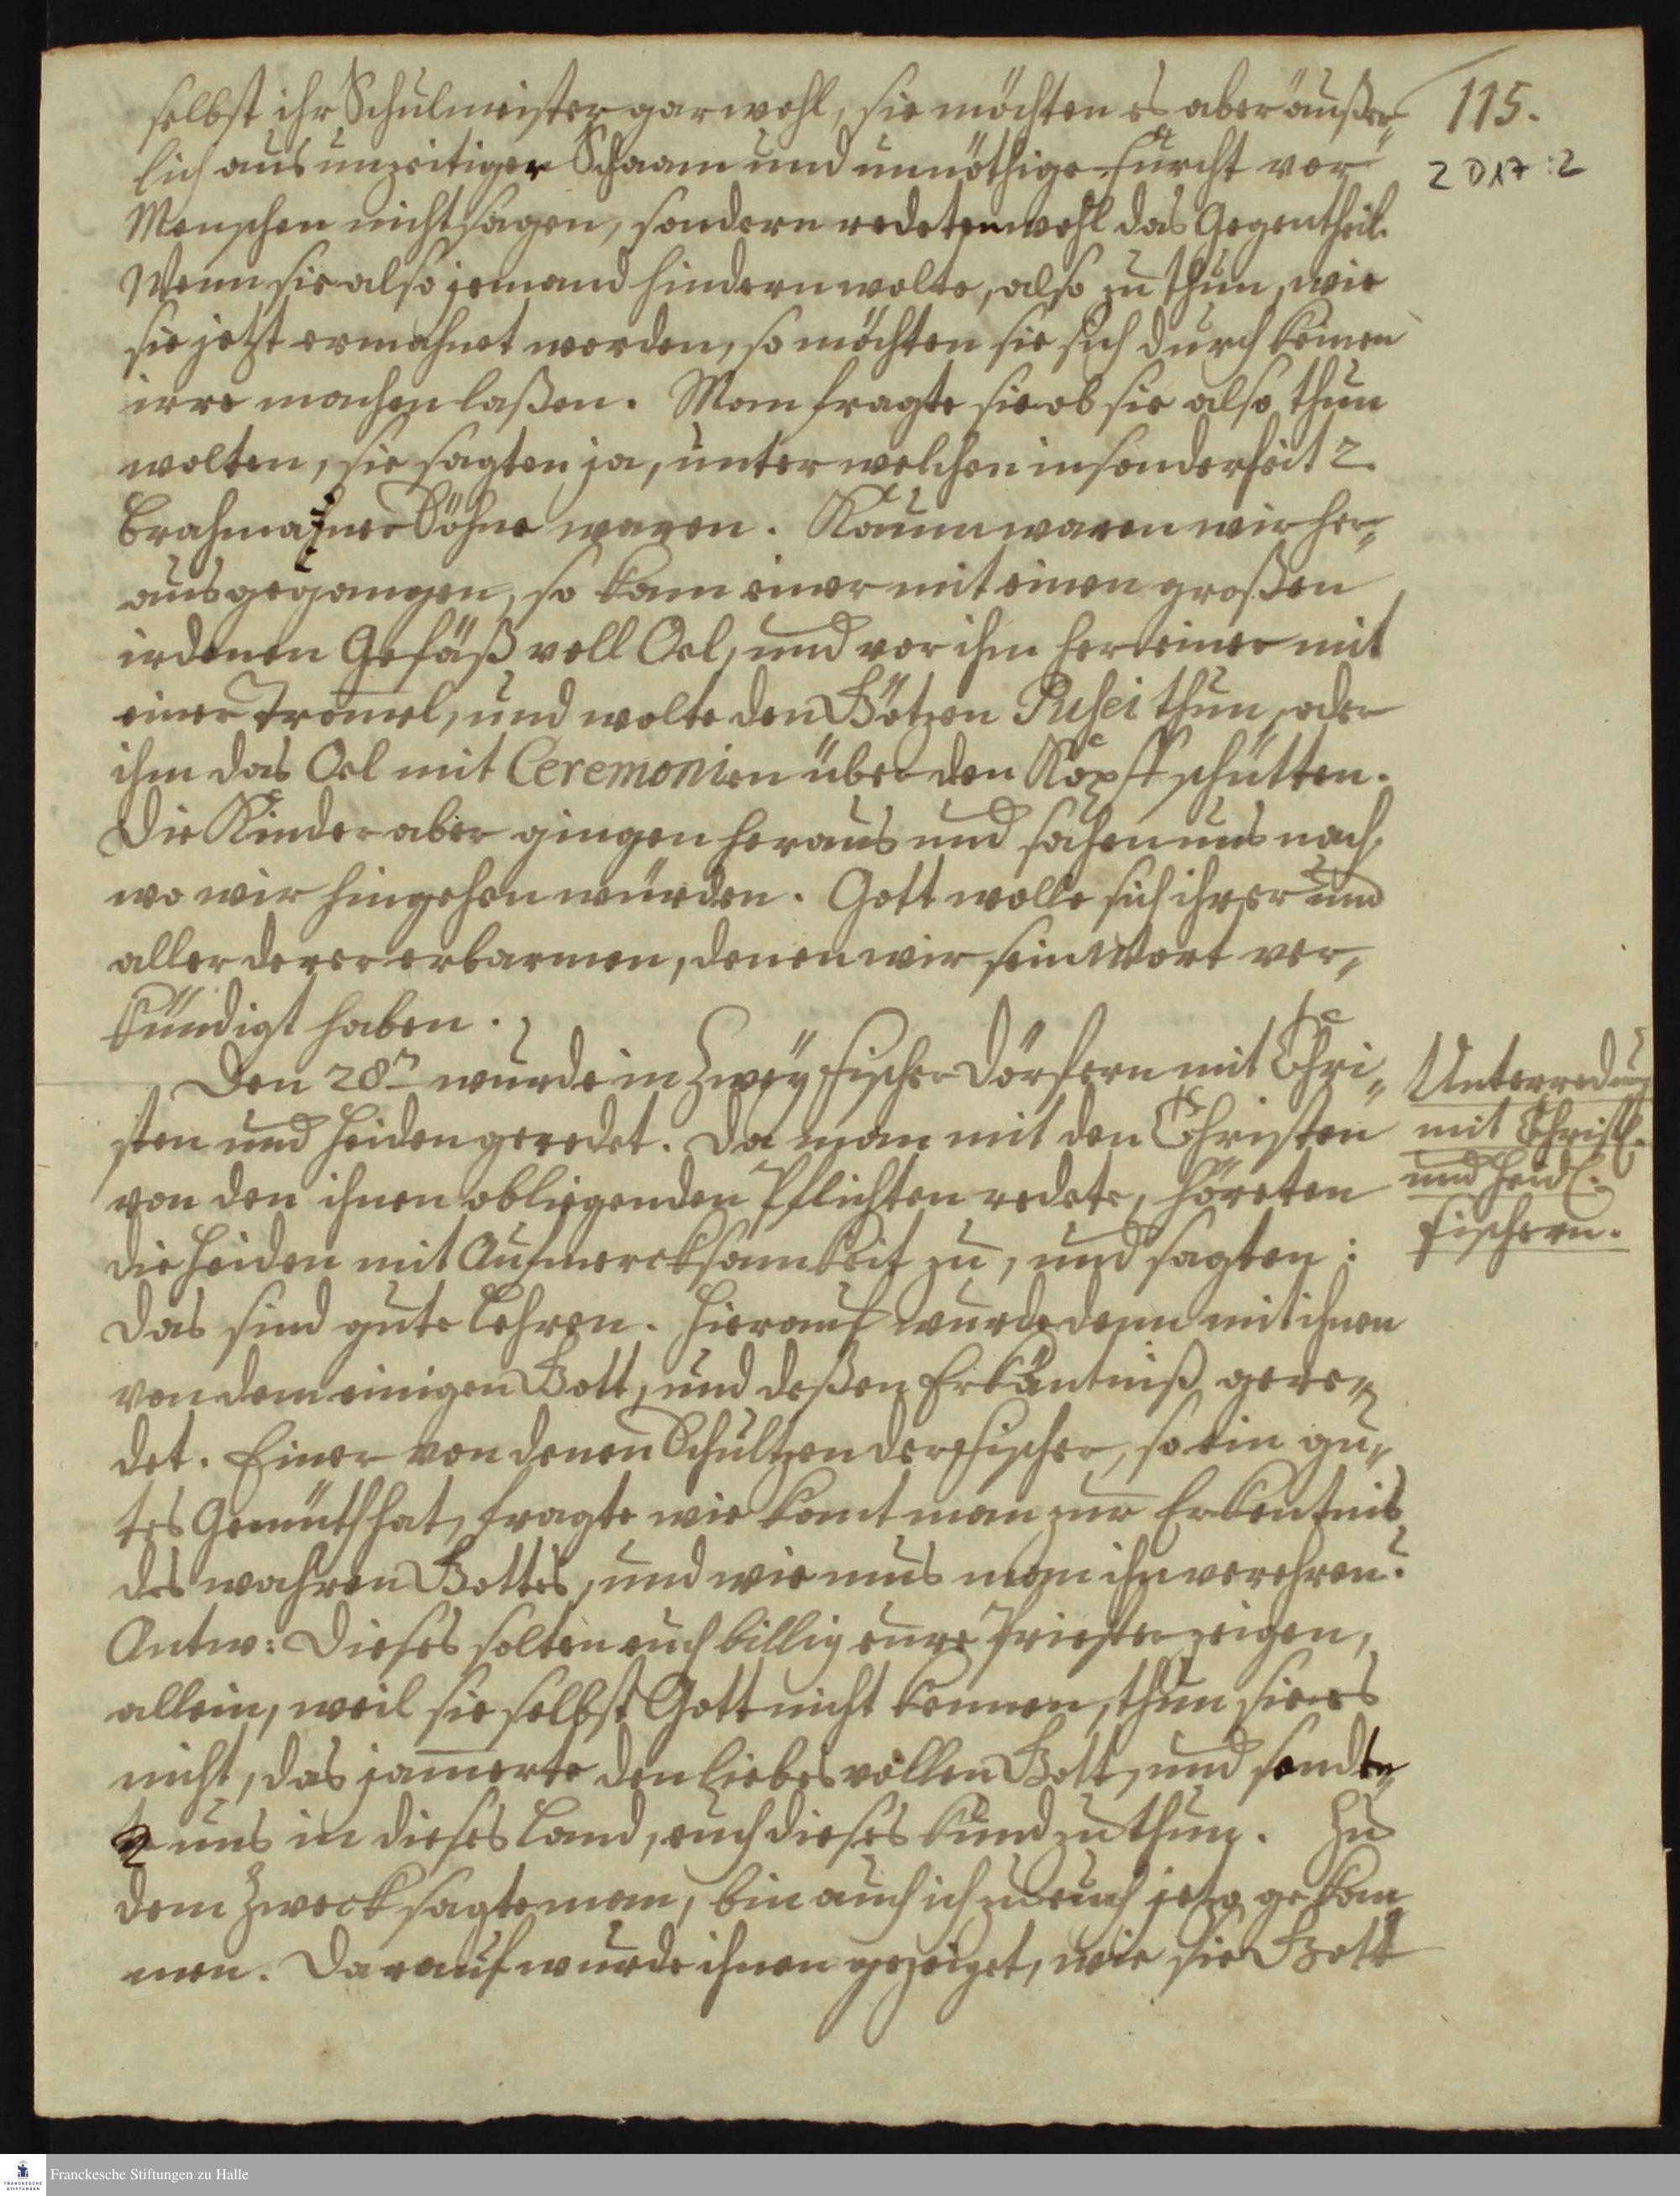 115.
2 D 17 : 2
selbst ihr Schulmeister gar wohl, sie möchten es aber äußer„
lich aus unzeitiger Schaam und unnöthige Furcht vor
Menschen nicht sagen, sondern redeten wohl das Gegentheil.
Wenn sie also jemand hindern wolte, also zu thun, wie
sie jetzt ermahnet worden, so möchten sie sich durch keinen
irre machen laßen. Man fragte sie ob sie also thun
wolten, sie sagten ja, unter welchen insonderheit 2.
Brahmaner Söhne waren. Kaum waren wir her„
ausgegangen, so kam einer mit einen großen
irdenen Gefäß voll Oel, und vor ihm her einer mit
einer Trom̄el, und wolte den Götzen Pusei thun, oder
ihm das Oel mit Ceremonien über den Kopff schütten.
Die Kinder aber gingen heraus und sahen uns nach,
wo wir hingehen würden. Gott wolle sich ihrer und
aller derer erbarmen, denen wir sein Wort ver„
kündigt haben.
Den 28n wurde in zweÿ Fischer Dörfern mit Chri„
sten und Heiden geredet. Da man mit den Christen
von den ihnen obliegenden Pflichten redete, höreten
die Heiden mit Aufmercksamkeit zu, und sagten:
Das sind gute Lehren. Hierauf wurde denn mit ihnen
von dem einigen Gott, und deßen Erkäntniß gere„
det. Einer von denen Schultzen der Fischer, so ein gu„
tes Gemüth hat, fragte wie komt man zur Erkentnis
des wahren Gottes, und wie mus man ihn verehren?
Antw: Dieses solten euch billig eure Priester zeigen,
allein, weil sie selbst Gott nicht kennen, thun sie es
nicht, das jam̄erte den Liebesvollen Gott, und sendte„
uns in dieses Land, euch dieses kund zu thun. Zu
dem Zweck sagte man, bin auch ich zu euch jetzo gekom„
men. Darauf wurde ihnen gezeiget, wie sie Gott
Unterredung
mit Christl.
und Heidl.
Fischern.
Franckesche Stiftungen zu Halle